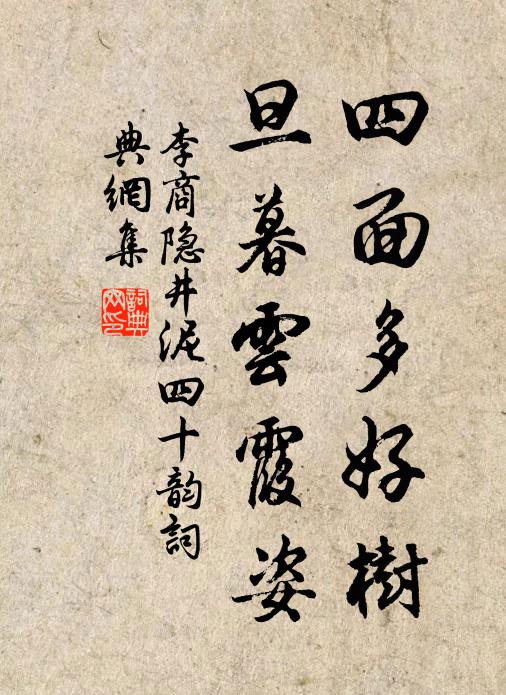 四面多好樹
旦暮雲霞姿
李商隐井泥四十韵詞
典網集
詞典
网印